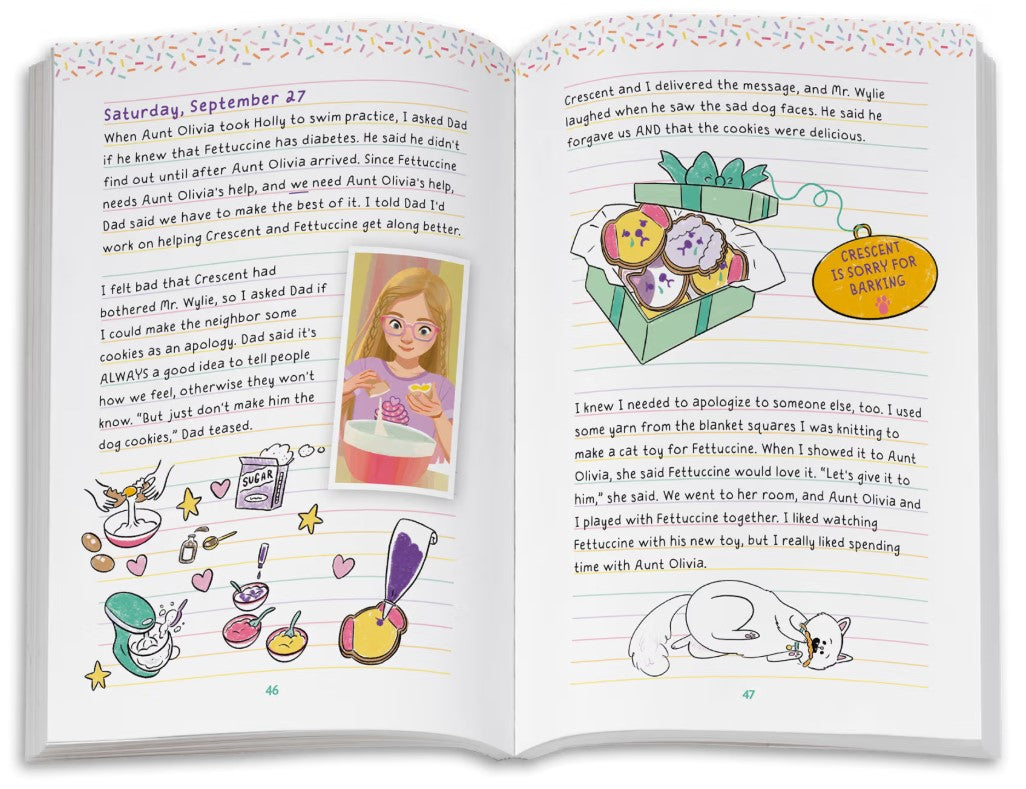 Saturday, September 27
When Aunt Olivia took Holly to swim practice, I asked Dad
if he knew that Fettuccine has diabetes. He said he didn't
find out until after Aunt Olivia arrived. Since Fettuccine
needs Aunt Olivia's help, and we need Aunt Olivia's help,
Dad said we have to make the best of it. I told Dad I'd
work on helping Crescent and Fettuccine get along better.
I felt bad that Crescent had
bothered Mr. Wylie, so I asked Dad if
I could make the neighbor some
cookies as an apology. Dad said it's
ALWAYS a good idea to tell people
how we feel, otherwise they won't
know. "But just don't make him the
dog cookies," Dad teased.
SUGAR
46
Crescent and I delivered the message, and Mr. Wylie
laughed when he saw the sad dog faces. He said he
forgave us AND that the cookies were delicious.
CRESCENT
IS SORRY FOR
BARKING
I knew I needed to apologize to someone else, too. I used
some yarn from the blanket squares I was knitting to
make a cat toy for Fettuccine. When I showed it to Aunt
Olivia, she said Fettuccine would love it. "Let's give it to
him," she said. We went to her room, and Aunt Olivia and
I played with Fettuccine together. I liked watching
Fettuccine with his new toy, but I really liked spending
time with Aunt Olivia.
47